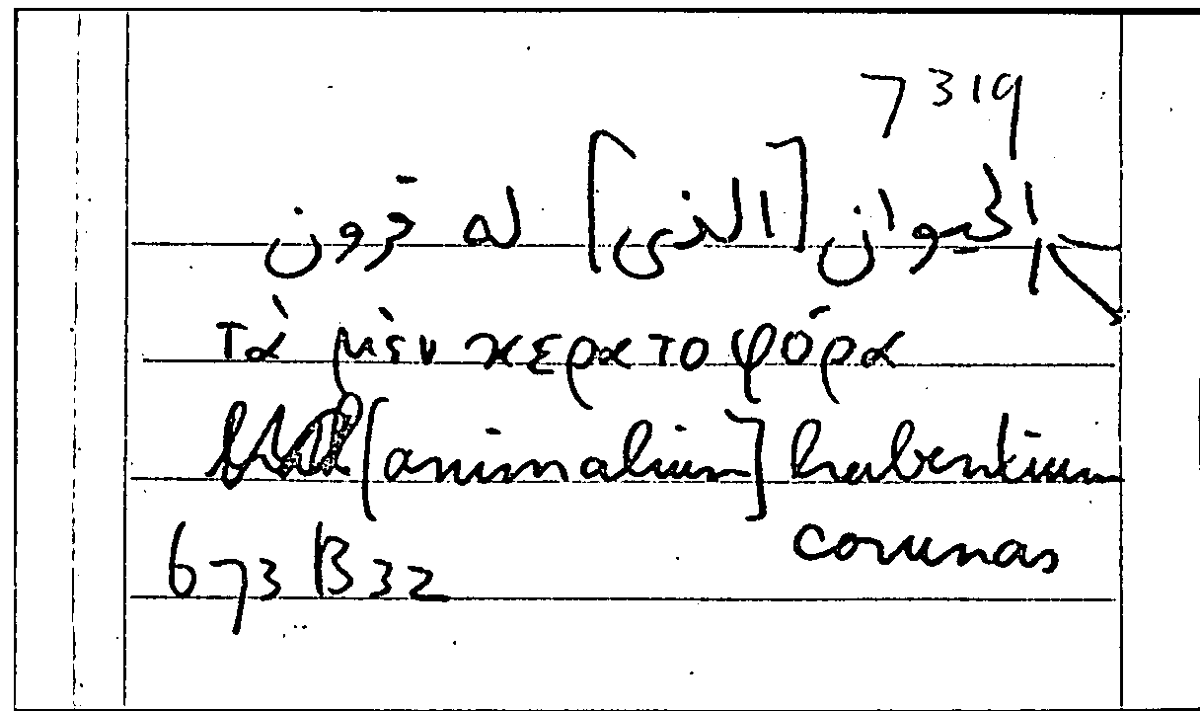 7319
الحيوان [الذى] له قرون
τὰ μὲν κερατοφόρα
[animalium] habentium
cornuas
673 B 32